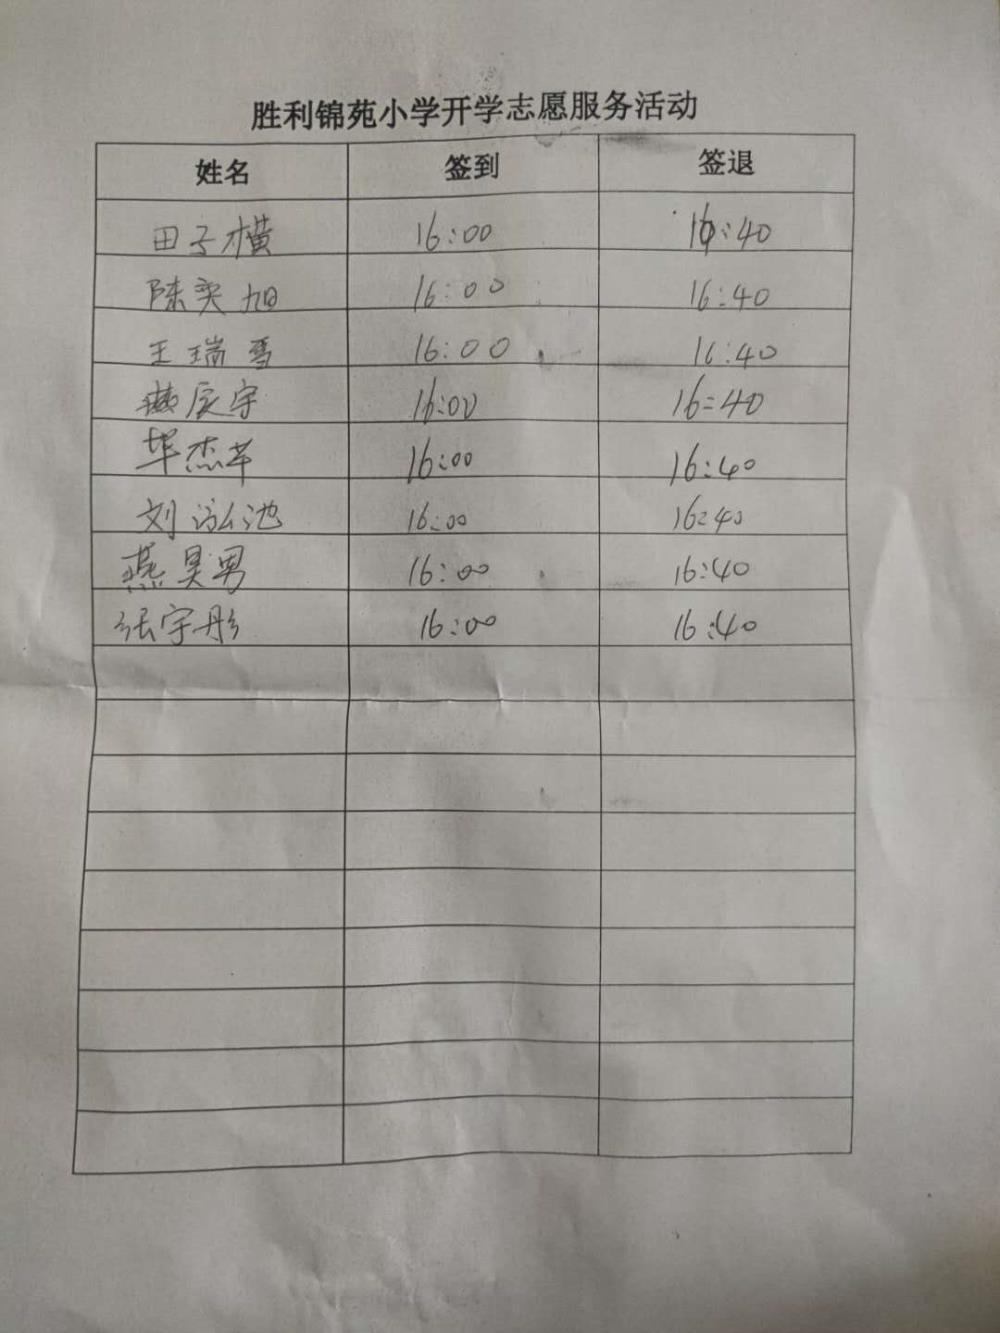 胜利锦苑小学开学志愿服务活动
姓名 签到 签退
田子横 16:00 16:40
陈奕旭 16:00 16:40
王瑞雪 16:00 16:40
辰宇 16:00 16:40
毕杰苹 16:00 16:40
刘泓池 16:00 16:40
燕昊男 16:00 16:40
张宇彤 16:00 16:40